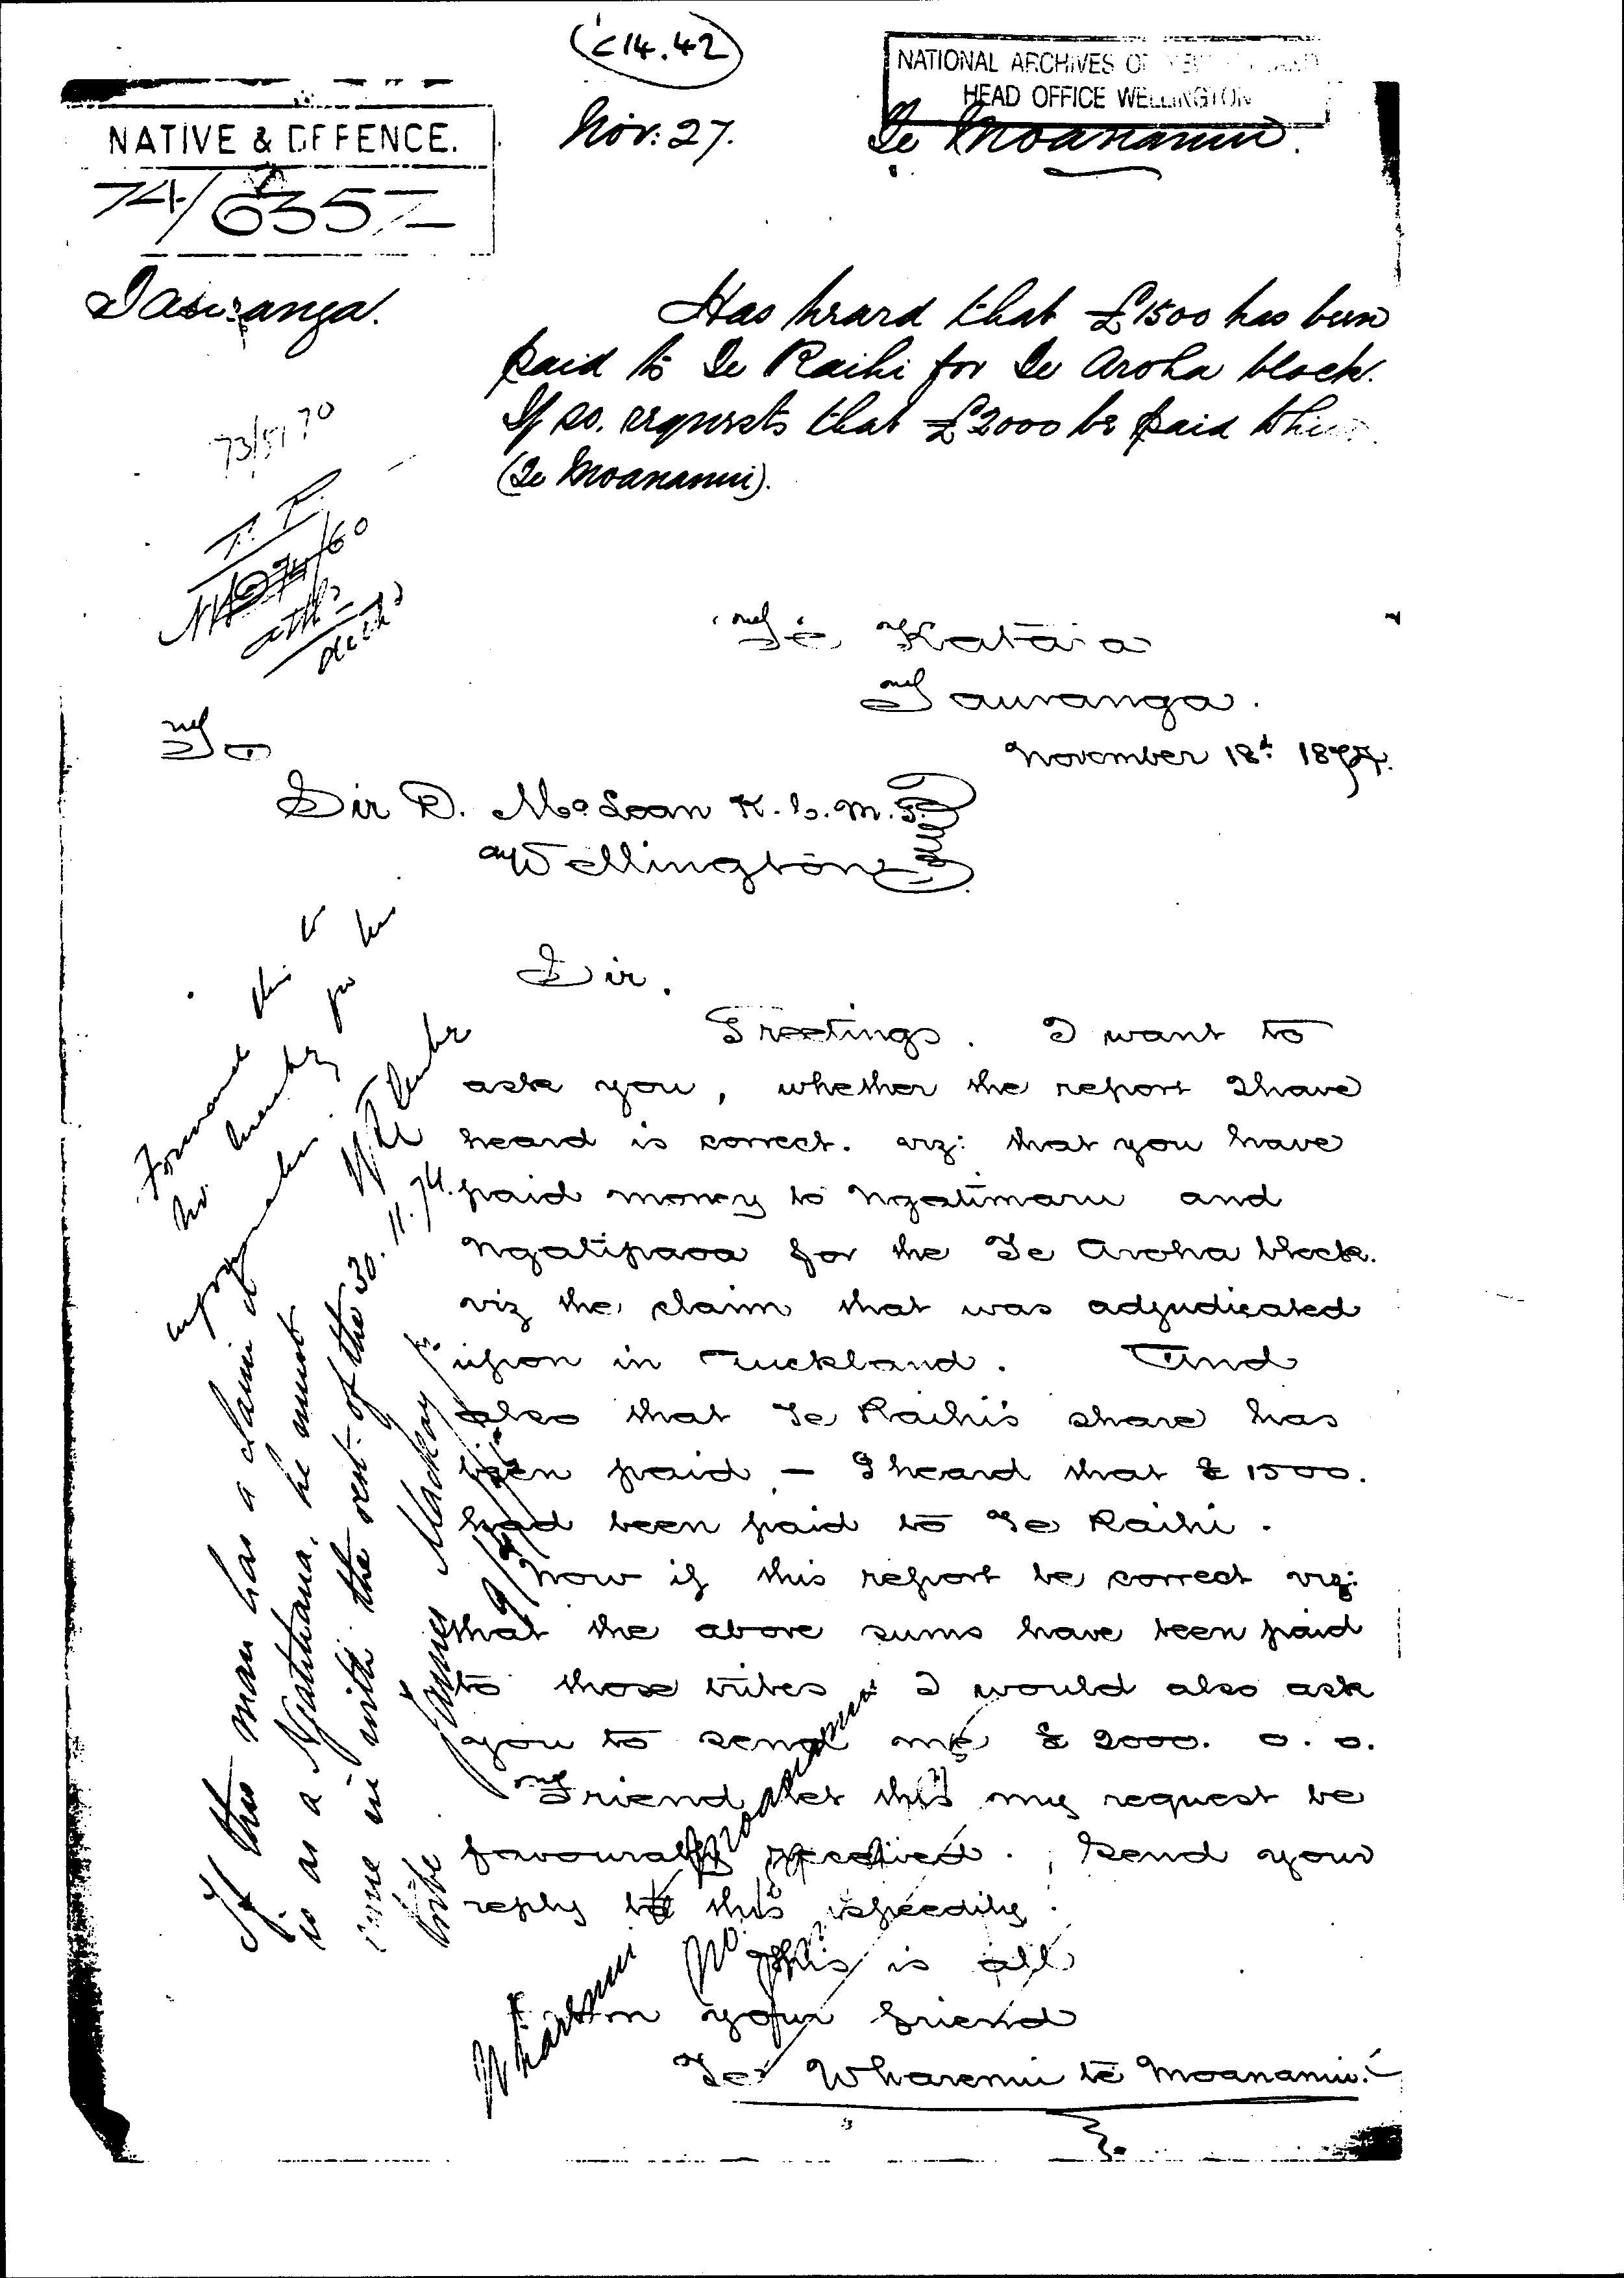 C14.42
NATIONAL ARCHIVES OF
HEAD OFFICE WELLINGTON
NATIVE & DEFENCE.
74/6357
Nov: 27.
Te Moananui.
Tauranga.
Has heard that £1500 has been
paid to Te Raihi for Te Aroha block.
If so, requests that £2000 be paid to him
(Te Moananui).
Te Kataia
Tauranga.
November 18th 1874.
To
Sir D. McLean K.C.M.G.
Wellington
Sir.
Greetings. I want to
ask you, whether the report I have
heard is correct. viz: that you have
paid money to Ngatimaru and
Ngatipaoa for the Te Aroha block.
viz the claim that was adjudicated
upon in Auckland. And
also that Te Raihi's share has
been paid – I heard that £1500.
had been paid to Te Raihi.
Now if this report be correct viz:
that the above sums have been paid
to those tribes I would also ask
you to send me £2000. 0. 0.
Friend let this my request be
favourably received. Send your
reply to this speedily.
This is all
From your friend
Te Wharenui te Moananui.
Forward this to
Mr Mackay for his
information
30.11.74.
If this man has a claim it
is as a Ngatihaua, he must
come in with the rest of the
tribe. James Mackay Jr.
Wharenui Moananui